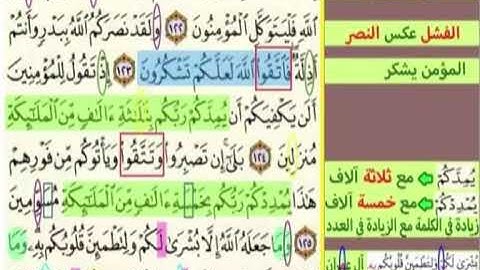 اللَّهِ فَلْيَتَوَكَّلِ الْمُؤْمِنُونَ ١٢٢ وَلَقَدْ نَصَرَكُمُ اللَّهُ بِبَدْرٍ وَأَنتُمْ
أَذِلَّةٌ فَاتَّقُوا اللَّهَ لَعَلَّكُمْ تَشْكُرُونَ ١٢٣ إِذْ تَقُولُ لِلْمُؤْمِنِينَ
أَلَن يَكْفِيَكُمْ أَن يُمِدَّكُمْ رَبُّكُم بِثَلَاثَةِ آلَافٍ مِّنَ الْمَلَائِكَةِ
مُنزَلِينَ ١٢٤ بَلَىٰ إِن تَصْبِرُوا وَتَتَّقُوا وَيَأْتُوكُم مِّن فَوْرِهِمْ
هَٰذَا يُمْدِدْكُمْ رَبُّكُم بِخَمْسَةِ آلَافٍ مِّنَ الْمَلَائِكَةِ مُسَوِّمِينَ
١٢٥ وَمَا جَعَلَهُ اللَّهُ إِلَّا بُشْرَىٰ لَكُمْ وَلِتَطْمَئِنَّ قُلُوبُكُم بِهِ وَمَا
الفشل عكس النصر
المؤمن يشكر
يُمِدَّكُمْ مع ثلاثة آلاف
يُمْدِدْكُمْ مع خمسة آلاف
زيادة في الكلمة مع الزيادة في العدد
بُشْرَىٰ لَكُمْ وَلِتَطْمَئِنَّ قُلُوبُكُم بِهِ آل عمران